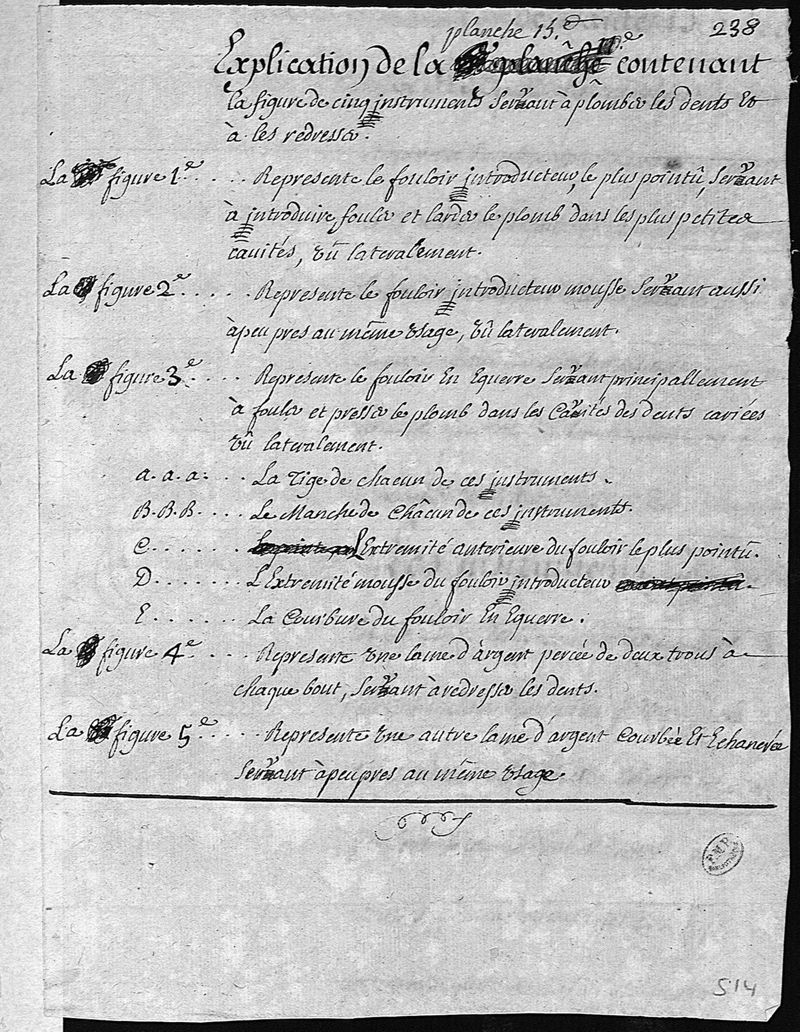 planche 15.e 238
Explication de la contenant
la figure de cinq instruments Servant à plômber les dents Et
à les redresser.
La figure 1.e .... Represente le fouloir introducteur, le plus pointû, Servant
à introduire fouler et larder le plomb dans les plus petites
cauités, vû lateralement.
La figure 2.e .... Represente le fouloir introducteur mousse Servant aussi
àpeu pres au même vsage, vû lateralement.
La figure 3.e .... Represente le fouloir En Equerre Servant principallement
à fouler et presser le plomb dans les Cavités des dents cariées
vû lateralement.
a. a. a. ... La Tige de chacun de ces instruments.
B. B. B. ... Le Manche de Châcun de ces instruments.
C ...... L'Extremité anterieure du fouloir le plus pointû.
D ...... L'Extremité mousse du fouloir introducteur
E ...... La Courbure du fouloir En Equerre.
La figure 4.e .... Represente vne lame d'argent percée de deux trous à
chaque bout, Servant à redresser les dents.
La figure 5.e .... Represente vne autre lame d'argent Courbée Et Echancrée
Servant àpeu pres au même vsage.
514